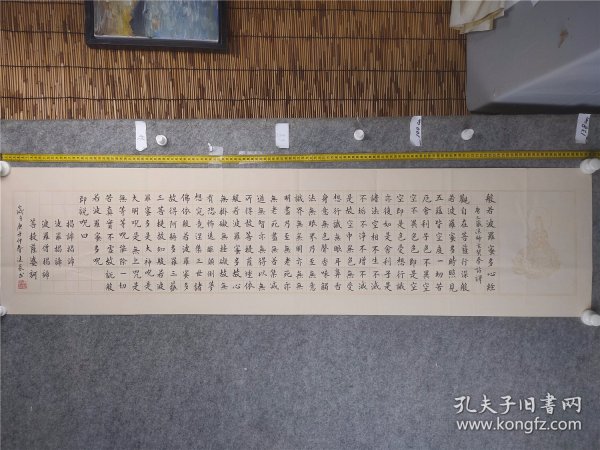 般若波羅蜜多心經
唐三藏法師玄奘奉詔譯
觀自在菩薩行深般
若波羅蜜多時照見
五蘊皆空度一切苦
厄舍利子色不異空
空不異色色即是空
空即是色受想行識
亦復如是舍利子是
諸法空相不生不滅
不垢不淨不增不減
是故空中無色無受
想行識無眼耳鼻舌
身意無色聲香味觸
法無眼界乃至無意
識界無無明亦無無
明盡乃至無老死亦
無老死盡無苦集滅
道無智亦無得以無
所得故菩提薩埵依
般若波羅蜜多故心
無掛礙無掛礙故無
有恐怖遠離顛倒夢
想究竟涅槃三世諸
佛依般若波羅蜜多
故得阿耨多羅三藐
三菩提故知般若波
羅蜜多是大神呪是
大明呪是無上呪是
無等等呪能除一切
苦真實不虛故說般
若波羅蜜多呪
即說呪曰
揭諦揭諦
波羅揭諦
波羅僧揭諦
菩提薩婆訶
孔夫子旧书网
www.kongfz.com